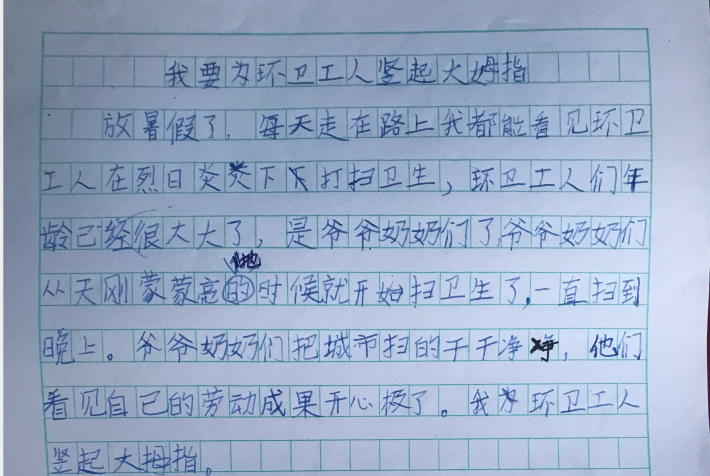 我要为环卫工人竖起大姆指
放暑假了，每天走在路上我都能看见环卫
工人在烈日炎炎下下打扫卫生，环卫工人们年
龄已经很大大了，是爷爷奶奶们了爷爷奶奶们
从天刚蒙蒙亮的时候就开始扫卫生了，一直扫到
晚上。爷爷奶奶们把城市扫的干干净净，他们
看见自己的劳动成果开心极了。我为环卫工人
竖起大拇指。